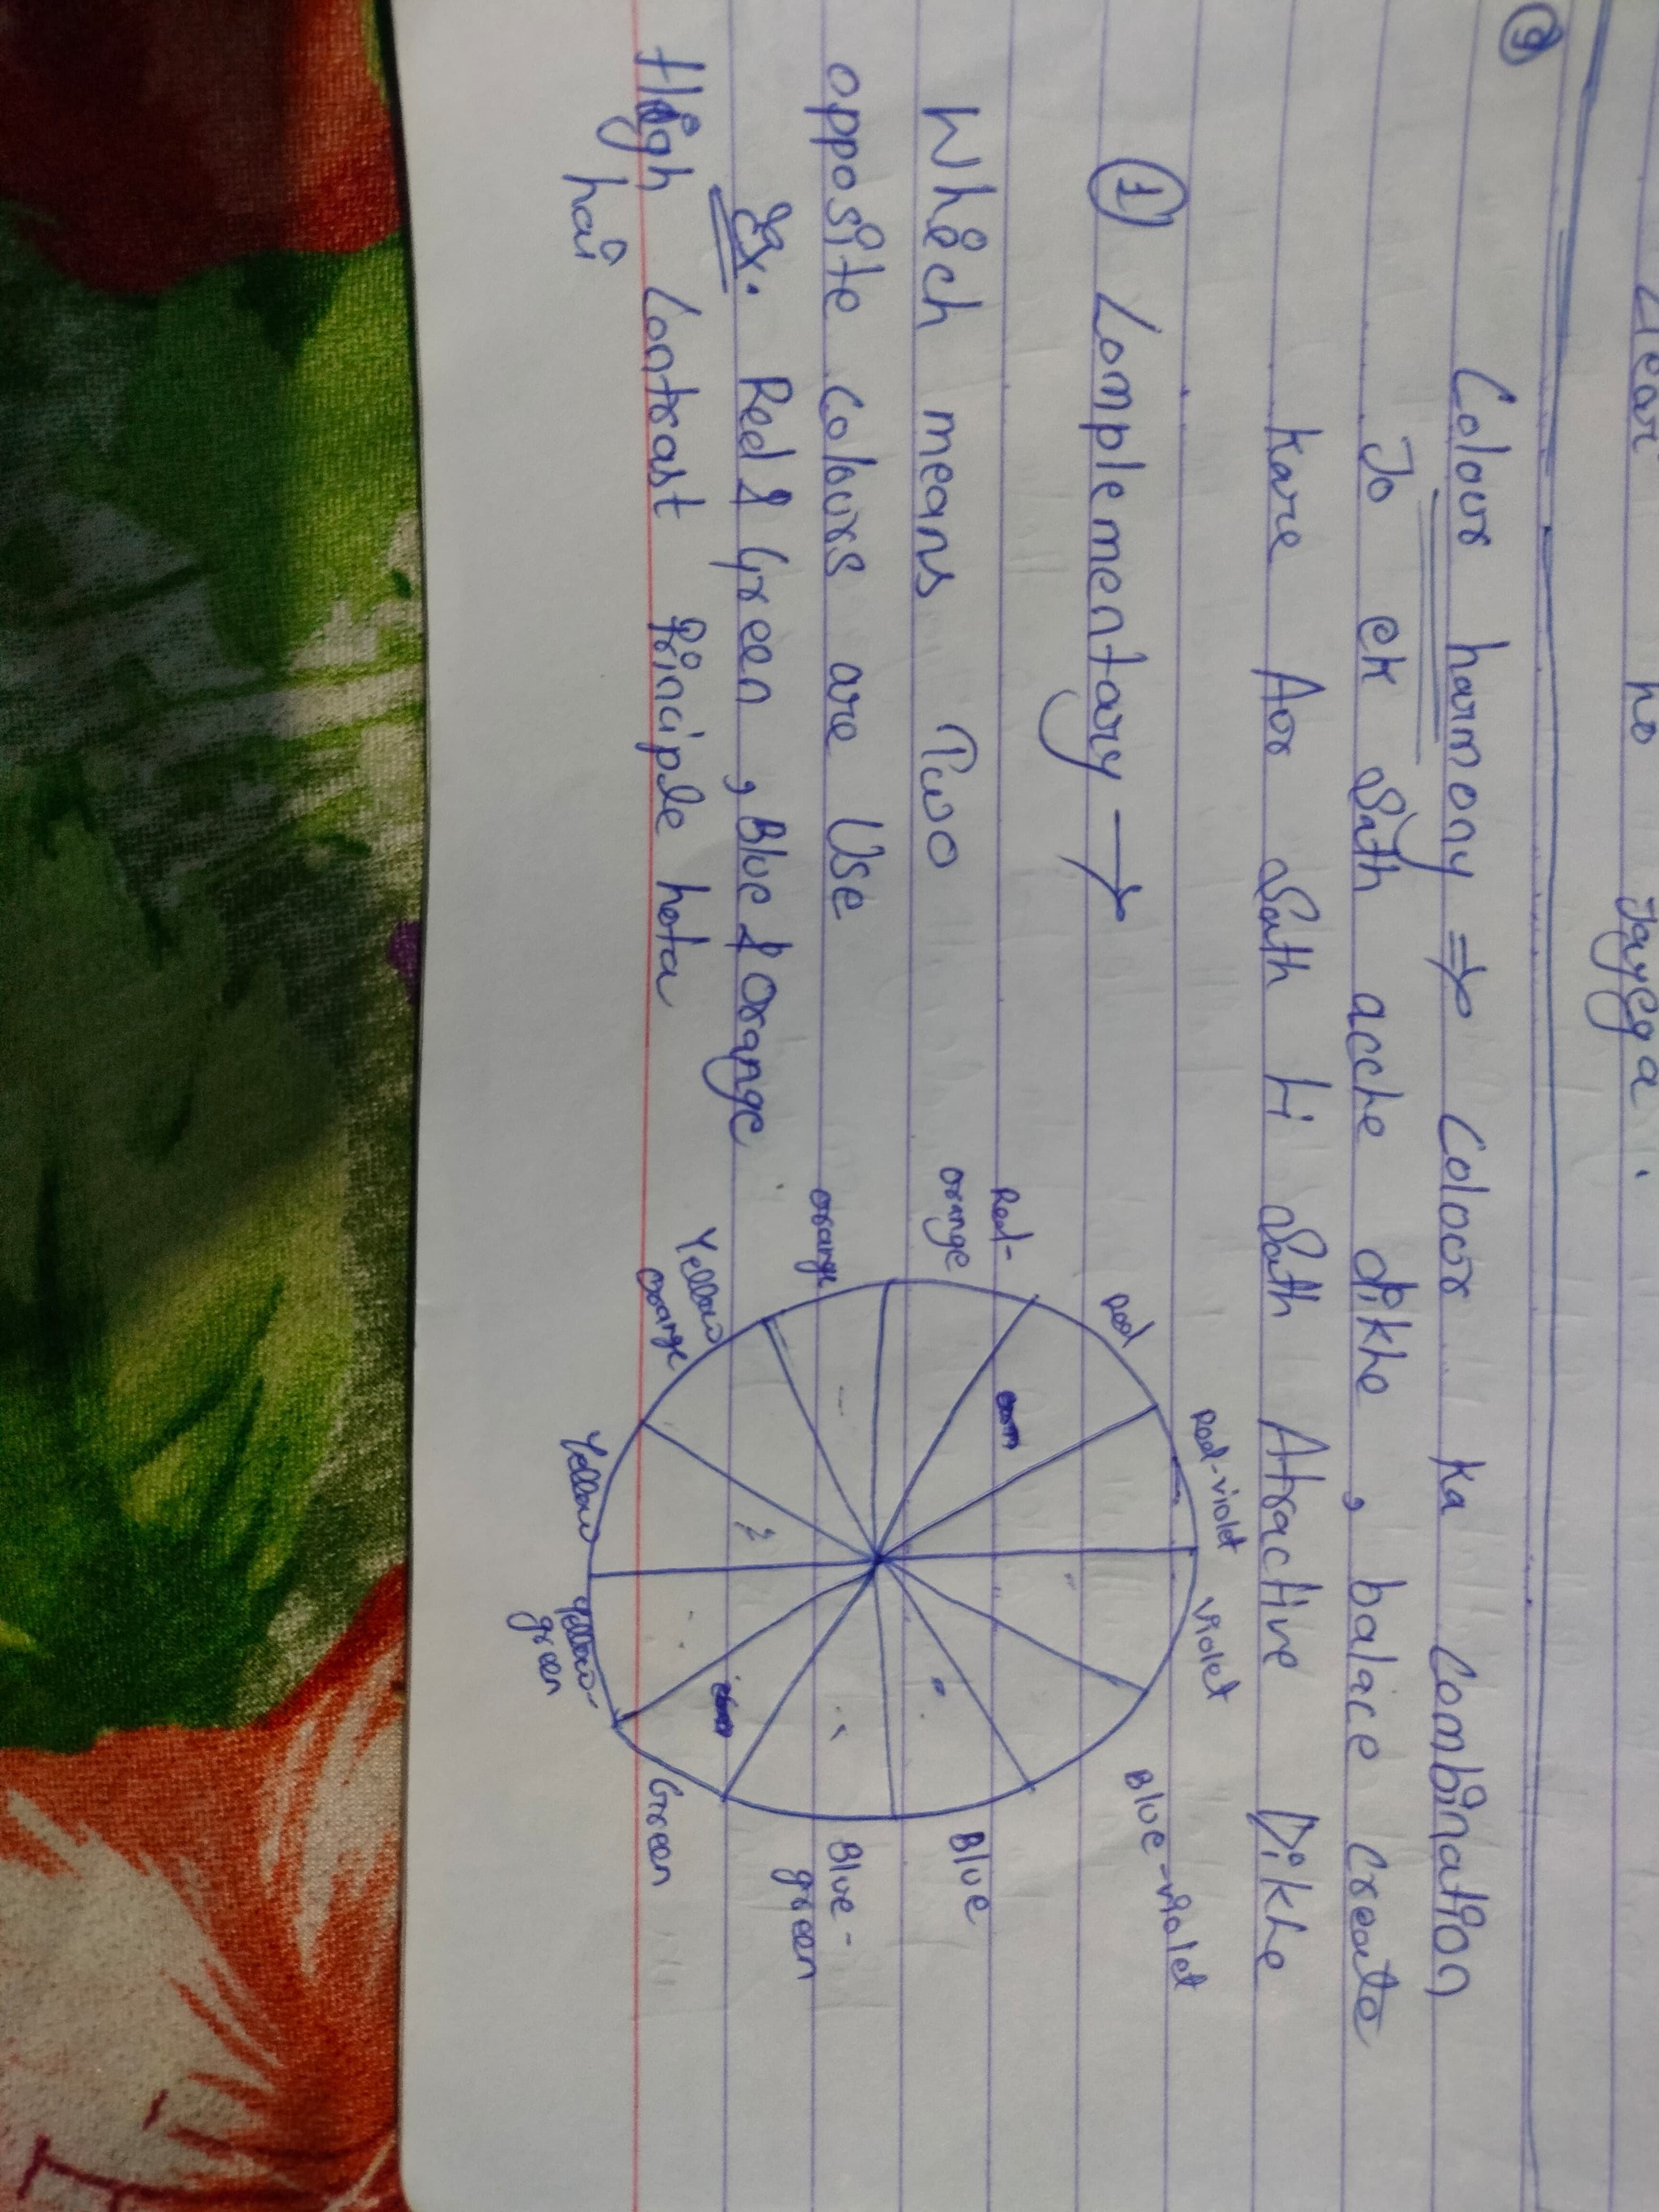 Clear ho Jayega.
③
Colour harmony ⇒ Colour ka Combination
Jo ek Sath acche dikhe , balace Create
Kare Aor Sath hi Sath Atractive Dikhe
① Complementary →
Which means Two
opposite Colours are Use
Ex. Red & Green , Blue & Orange
High Contrast Principle hota
hai
Red-violet
violet
Red
Blue-violet
Red-
orange
Blue
orange
Blue-
green
Yellow
orange
Green
Yellow
Yellow-
green